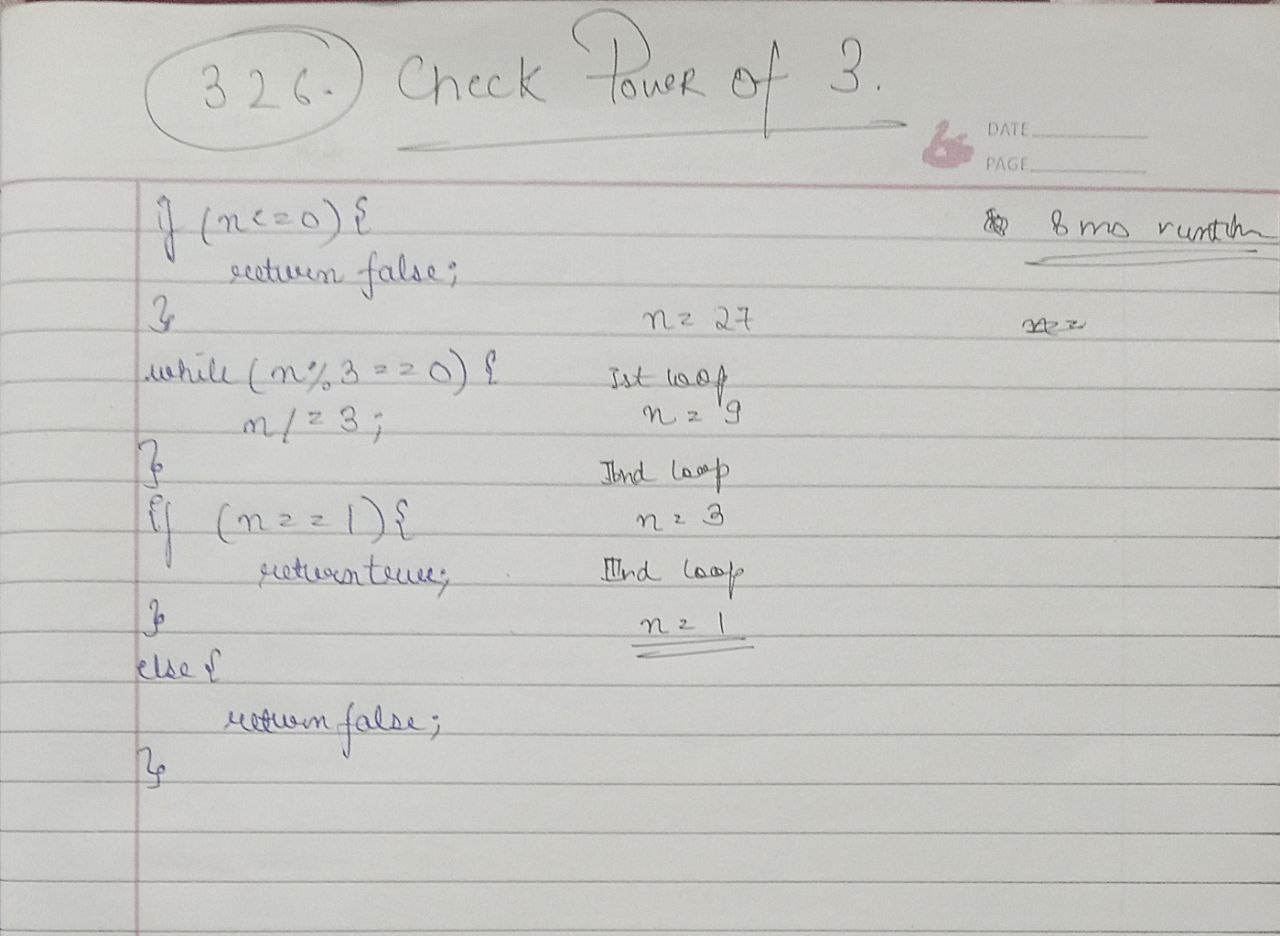 326. Check Power of 3.
DATE
PAGE
if (n<=0) {
return false;
}
while (n%3==0) {
n/=3;
}
if (n==1) {
return true;
}
else {
return false;
}
8 ms
n=27
Ist loop
n=9
IInd loop
n=3
IIIrd loop
n=1
n=